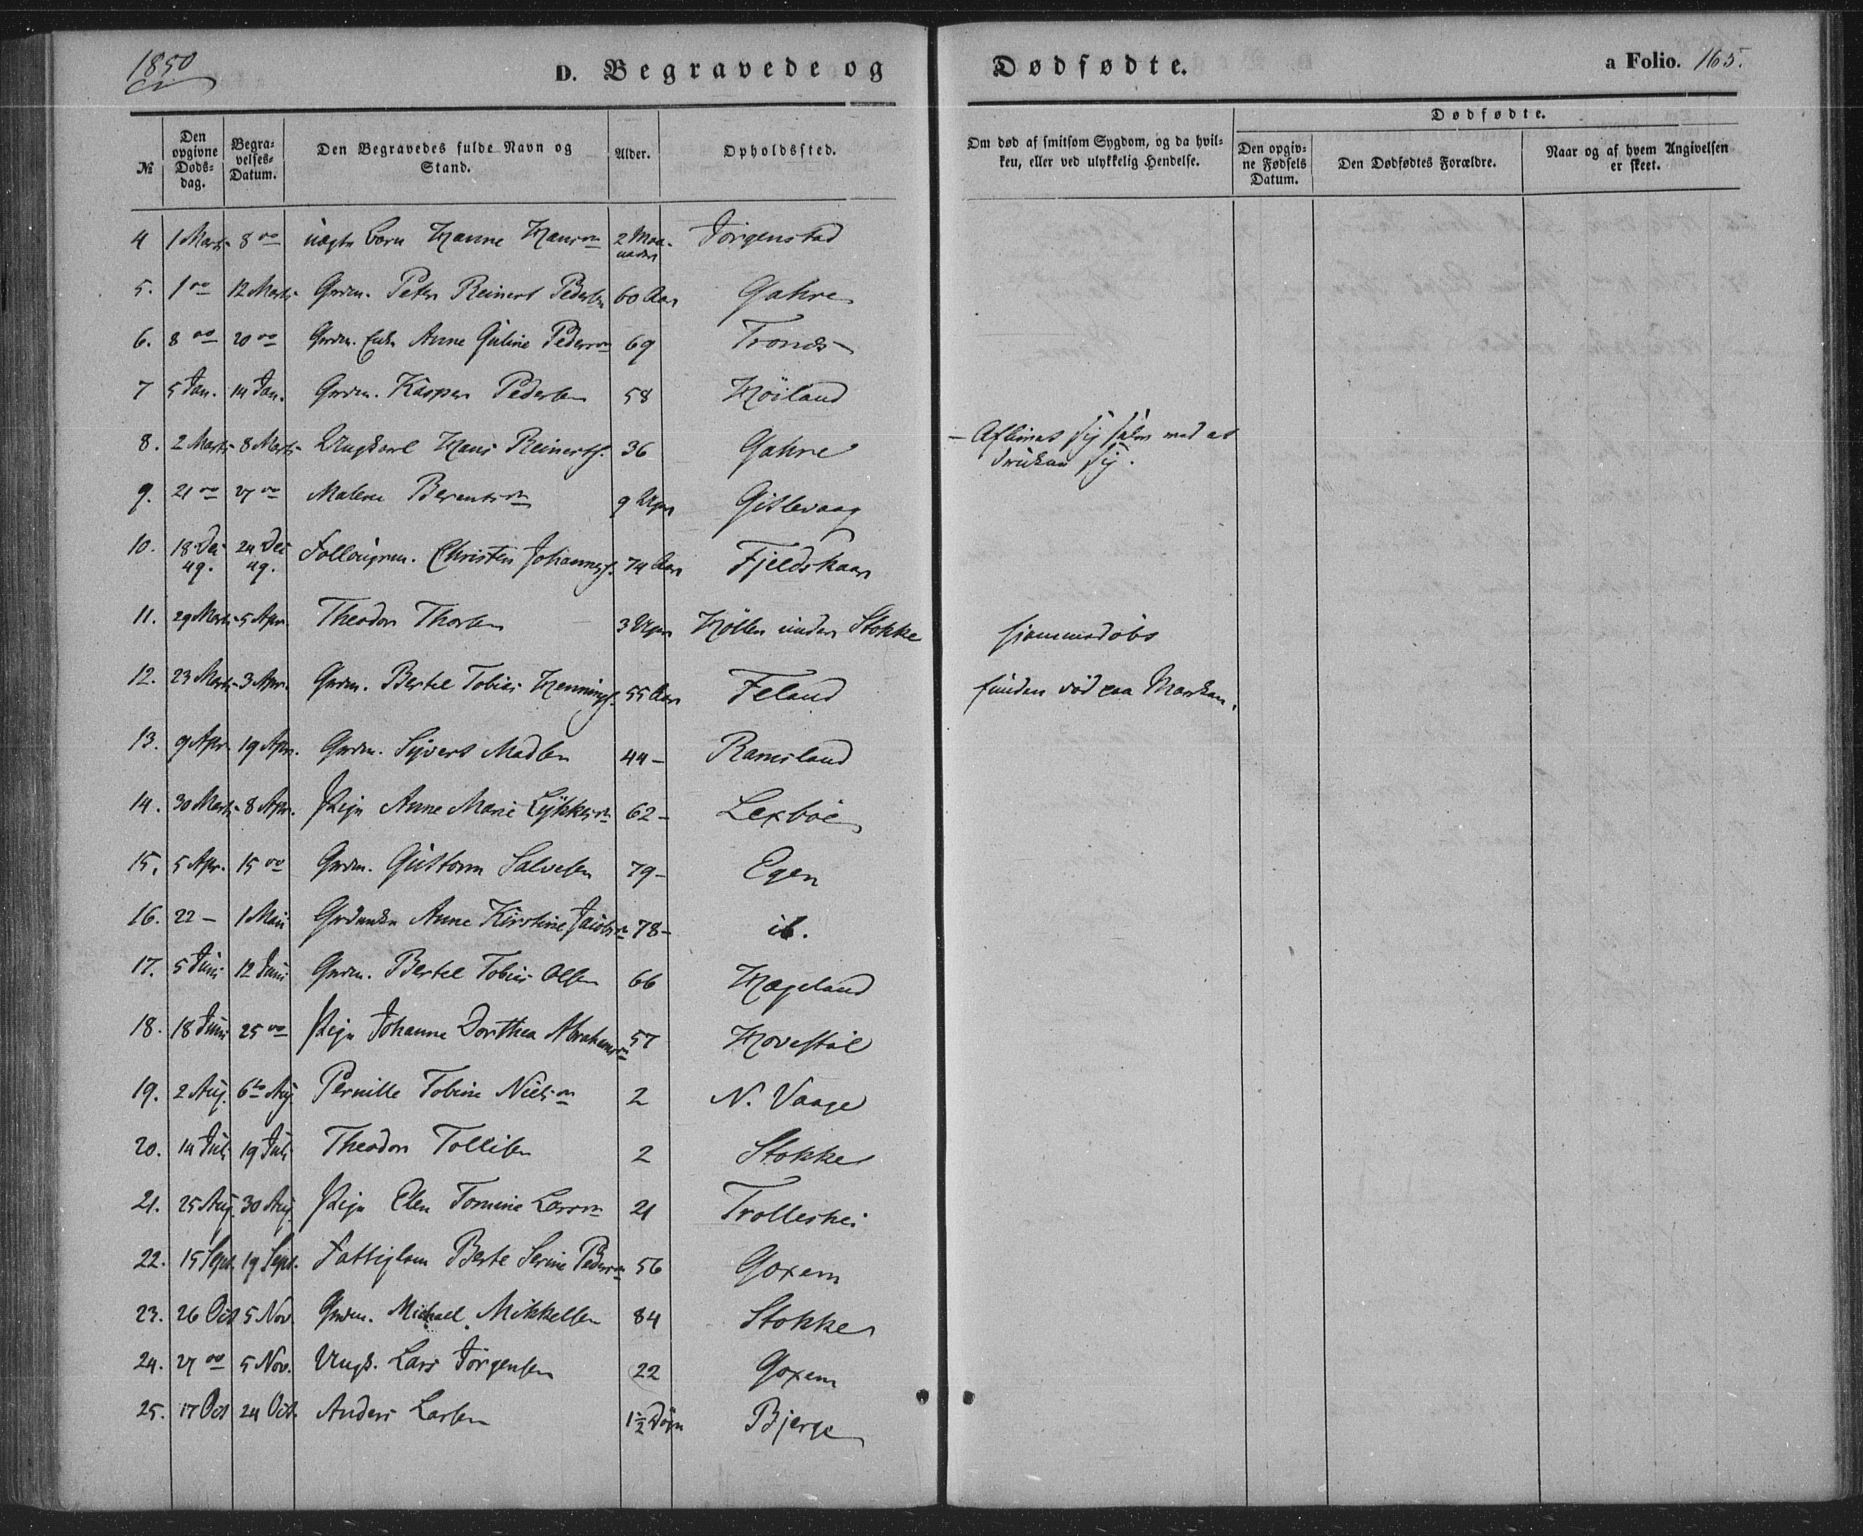 1850
D. Begravede og Dødfødte. a Folio. 165.
Dødfødte.
№ | Den opgivne Døds-dag. | Begra-velses-Datum. | Den Begravedes fulde Navn og Stand. | Alder. | Opholdssted. | Om død af smitsom Sygdom, og da hvil-ken, eller ved ulykkelig Hendelse. | Den opgiv-ne Fødsels Datum. | Den Dødfødtes Forældre. | Naar og af hvem Angivelsen er skeet.
4 | 1 Marts | 8 do | uægte Barn Hanne Hans | 2 Maa-neder | Jørgenstad
5. | 1 do | 12 Marts | Grdm. Peter Reinert Pedersen | 60 Aar | Gahre
6. | 8 do | 20 do | Grdm. Enke Anne Guline Peders | 69 | Tronds
7 | 5 Jan. | 14 Jan. | Grdm. Kasper Pedersen | 58 | Høiland
8. | 2 Marts | 8 Marts | Ungkarl Hans Reinerts. | 36 | Gahre | Aflivet sig selv med at drukne sig.
9. | 21 do | 27 do | Malene Berents | 9 Uger | Gislevaag
10. | 18 Dec 49. | 24 Dec 49. | Christen Johannes. | 74 Aar | Fjeldskaar
11. | 29 Marts | 5 Apr. | Theodor Thorsen | 3 Uger | Høllen under Stokke | hjemmedøbt
12. | 23 Marts | 3 Apr. | Grdm. Bertel Tobias Hennings. | 55 Aar | Feland | funden død paa Marken.
13. | 9 Apr. | 19 Apr. | Grdm. Syvert Madsen | 44 – | Ramsland
14. | 30 Marts | 8 Apr. | Pige Anne Marie Lykkes | 62 – | Lexbøe
15. | 5 Apr. | 15 do | Grdm. Guttorm Salvesen | 79 – | Egen
16. | 22 – | 1 Mai | Grdenke Anne Kirstine Jacobs | 78 – | ib.
17. | 5 Juni | 12 Juni | Grdm. Bertel Tobias Olsen | 66 | Hægeland
18. | 18 Juni | 25 do | Pige Johanne Dorthea Abrahams | 57 | Hovestøl
19. | 2 Aug. | 6te Aug. | Pernille Tobine Niels | 2 | N. Vaage
20. | 14 Juli | 19 Juli | Theodor Tollisen | 2 | Stokke
21. | 25 Aug. | 30 Aug. | Pige Elen Tomine Lars | 21 | Trolleshei
22. | 15 Sept. | 19 Sept. | Fattiglem Berte Serine Peders | 56 | Goxem
23. | 26 Oct | 5 Nov. | Grdm. Michael Mikkelsen | 84 | Stokke
24. | 27 do | 5 Nov. | Ungk. Lars Jørgensen | 22 | Goxem
25. | 17 Oct | 24 Oct. | Anders Larsen | 1½ Døgn | Bjerge